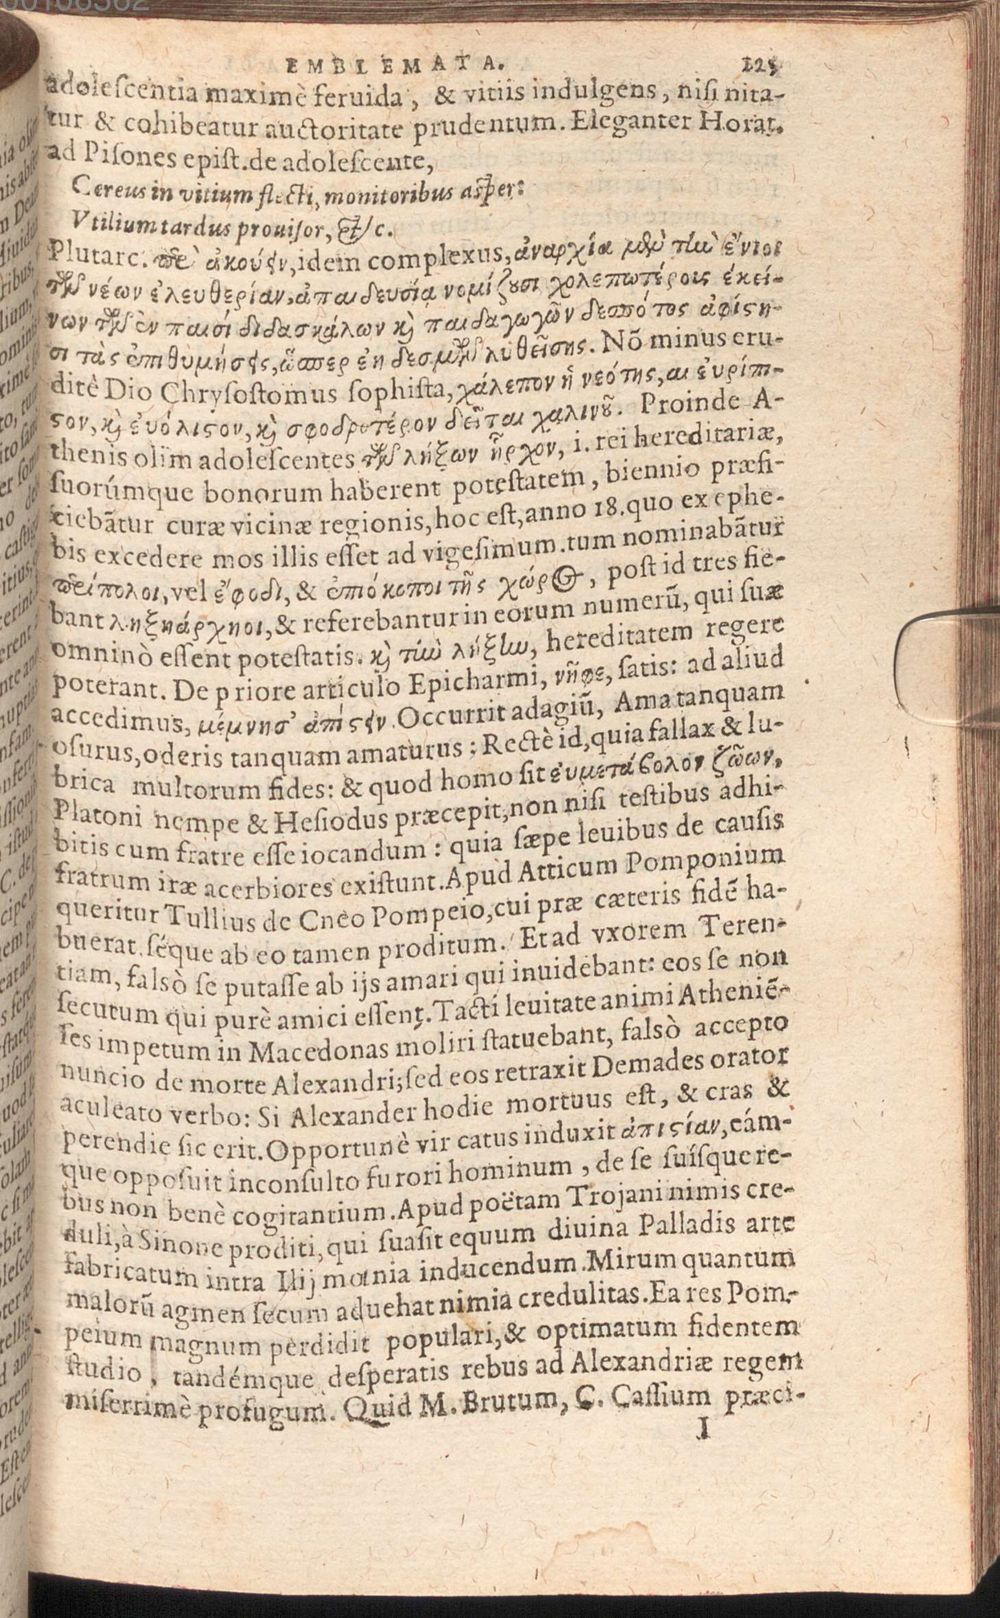 EMBLEMATA. 129
adolescentia maximè feruida, & vitiis indulgens, nisi nita-
tur & cohibeatur auctoritate prudentum. Eleganter Horat.
ad Pisones epist. de adolescente,
Cereus in vitium flecti, monitoribus asper:
Vtilium tardus prouisor, &c.
Plutarc. ἀκούειν, idem complexus, ἀναρχίαν μὲν τὴν ἔνιοι
τῶν νέων ἐλευθερίαν, ἀπαιδευσία νομίζουσι χαλεπωτέροις ἐκεί-
νων τῶν ἐν παισί διδασκάλων καὶ παιδαγωγῶν δεσπότας ἀφίστη-
σι τὰς ἐπιθυμήσεις, ὥσπερ ἐκ δεσμῶν λυθεῖσης. Nō minus eru-
ditè Dio Chrysostomus sophista, χάλεπον ἡ νεότης, αι εὐρίπι-
στον, καὶ εὐόλιστον, καὶ σφοδροτέρον δεῖται χαλινοῦ. Proinde A-
thenis olim adolescentes τῶν λήξων ἦρχον, i. rei hereditariæ,
suorúmque bonorum haberent potestatem, biennio præfi-
ciebātur curæ vicinæ regionis, hoc est, anno 18. quo ex ephe-
bis excedere mos illis esset ad vigesimum. tum nominabātur
περίπολοι, vel ἔφοδι, & ἐπιόκοποι τῆς χώρος, post id tres fie-
bant ληξηάρχηοι, & referebantur in eorum numerū, qui suæ
omninò essent potestatis. καὶ τὴν λήξιν, hereditatem regere
poterant. De priore articulo Epicharmi, νῆφε, satis: ad aliud
accedimus, μέμνησ' ἀπιστεῖν. Occurrit adagiū, Ama tanquam
osurus, oderis tanquam amaturus: Rectè id, quia fallax & lu-
brica multorum fides: & quod homo sit ευμετάβολον ζῶων,
Platoni nempe & Hesiodus præcepit, non nisi testibus adhi-
bitis cum fratre esse iocandum: quia sæpe leuibus de causis
fratrum iræ acerbiores existunt. Apud Atticum Pomponium
queritur Tullius de Cneo Pompeio, cui præ cæteris fidē ha-
buerat, séque ab eo tamen proditum. Et ad vxorem Teren-
tiam, falsò se putasse ab ijs amari qui inuidebant: eos se non
secutum qui purè amici essent. Tacti leuitate animi Atheniē-
ses impetum in Macedonas moliri statuebant, falsò accepto
nuncio de morte Alexandri; sed eos retraxit Demades orator
aculeato verbo: Si Alexander hodie mortuus est, & cras &
perendie sic erit. Opportunè vir catus induxit ἀπιστίαν, eám-
que opposuit inconsulto furori hominum, de se suísque re-
bus non benè cogitantium. Apud poëtam Trojani nimis cre-
duli, à Sinone proditi, qui suasit equum diuina Palladis arte
fabricatum intra Ilij mœnia inducendum. Mirum quantum
malorū agmen secum aduehat nimia credulitas. Ea res Pom-
peium magnum perdidit populari, & optimatum fidentem
studio, tandémque desperatis rebus ad Alexandriæ regem
miserrimè profugum. Quid M. Brutum, C. Cassium præci-
I